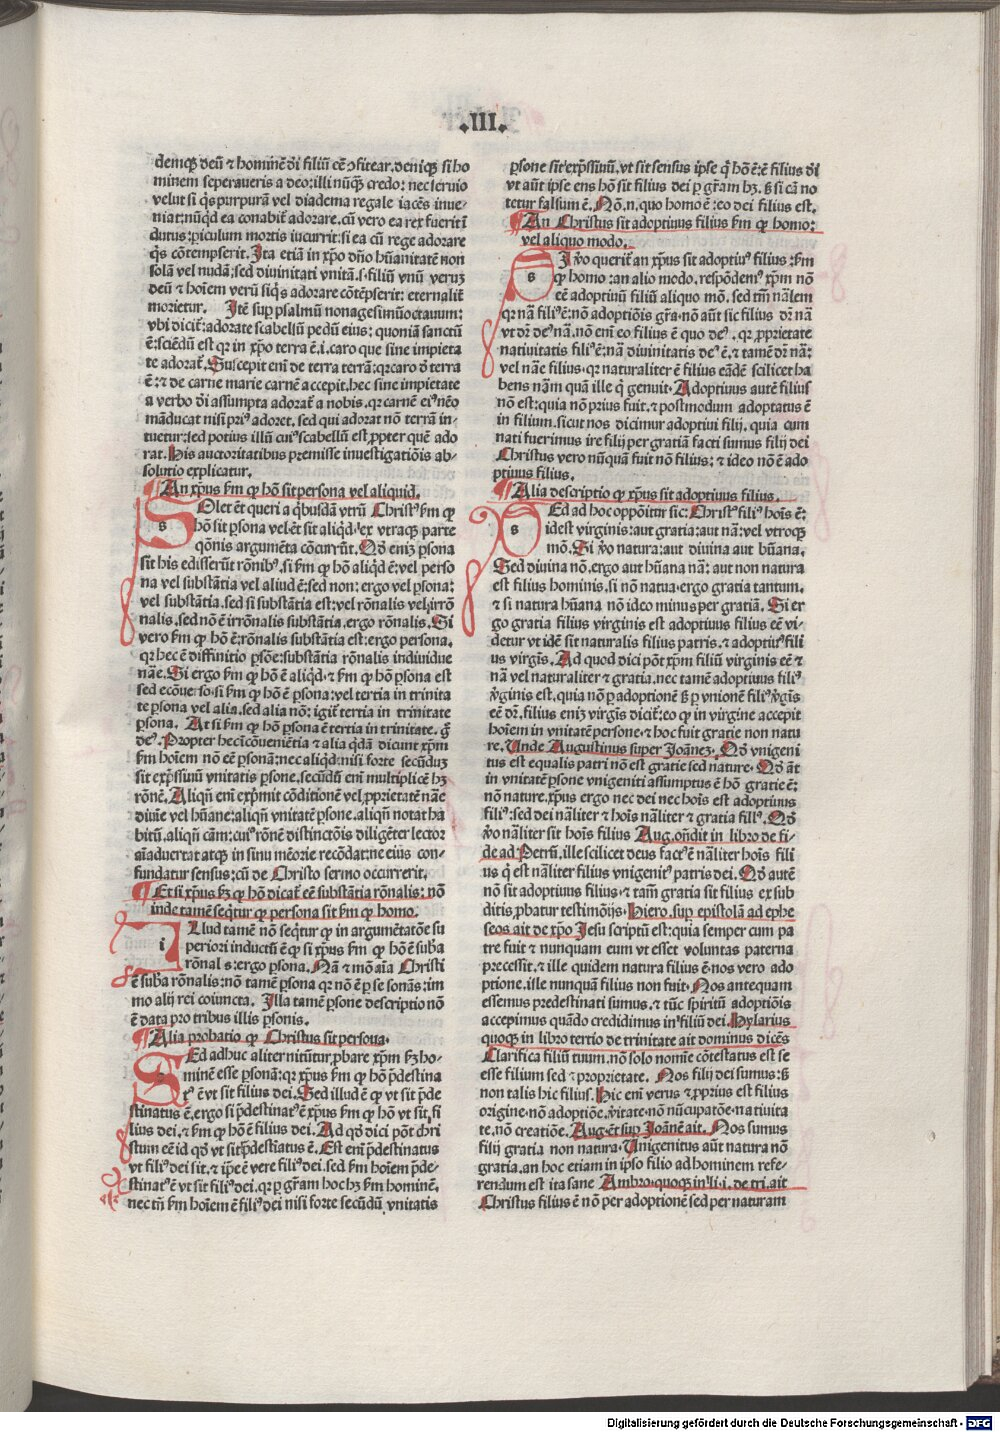 .III.
demēꝗ deū ⁊ hominē dī filiū eē ↄfitear, deniqꝫ si ho
minem seperaueris a deo: illi nūqꝫ credo: nec seruio
velut si q̄s purpurā vel diadema regale iacēs inue⸗
niat: nūqͥd ea conabit᷑ adorare, cū vero ea rex fuerit ī
dutus: piculum mortis iucurrit: si ea cū rege adorare
q̄s cōtempserit. Ita etiā in xp̄o dn̄o hūanitatē non
solā vel nudā: sed diuinitati vnitā. s. filiū vnū veruꝫ
deū ⁊ hoīem verū siq̄s adorare cōtēpserit: eternalit᷑
morietur. Itē sup psalmū nonagesimūoctauum:
vbi dicit᷑: adorate scabellū pedū eius: quoniā sanctū
ē: sciēdū est qꝛ in xp̄o terra ē. i. caro que sine impieta
te adorat᷑. Suscepit eni de terra terrā: qꝛ caro đ terra
ē: ⁊ de carne marie carnē accepit, hec sine impietate
a verbo dī assumpta adorat᷑ a nobis, qꝛ carnē eiꝰ nēo
māducat nisi priꝰ adoret, sed qui adorat nō terrā in⸗
tuetur: sed potius illū cuiꝰ scabellū est, ꝓpter quē ado
rat. His auctoritatibus premisse inuestigatiōis ab⸗
solutio explicatur.
¶ An xp̄us fm ꝙ hō sit persona vel aliquid.
SOlet ēt queri a qͥbusdā vtrū Christꝰ fm ꝙ
hō sit ꝑsona vel ēt sit aliqͥd. ⁊ ex vtraqꝫ parte
qōnis argumēta cōcurrūt. Qđ enī ꝑsona
sit his edisserūt rōnibꝰ. si fm ꝙ hō aliqͥd ē: vel perso
na vel substātia vel aliud ē: sed non: ergo vel ꝑsona:
vel substātia. sed si substātia est: vel rōnalis vel irrō
nalis. sed nō ē irrōnalis substātia, ergo rōnalis. Si
vero fm ꝙ hō ē: rōnalis substātia est: ergo persona.
qꝛ hec ē diffinitio ꝑsōe: substātia rōnalis indiuidue
nāe. Si ergo fm ꝙ hō ē aliqͥd, ⁊ fm ꝙ hō ꝑsona est
sed ecōuerso. si fm ꝙ hō ē ꝑsona: vel tertia in trinita
te ꝑsona vel alia. sed alia nō: igit᷑ tertia in trinitate
ꝑsona. At si fm ꝙ hō ꝑsona ē tertia in trinitate. g̊
deꝰ. Propter hec incōueniētia ⁊ alia q̄dā dicunt xp̄m
fm hoiem nō eē ꝑsonā: nec aliqͥd: nisi forte secūduꝫ
sit exp̄ssiuū vnitatis ꝑsone. secūdū enī multiplicē hꝫ
rōnē. Aliqn̄ enī exp̄mit cōditionē vel ꝓprietatē nāe
diuīe vel hūane: aliqn̄ vnitatē ꝑsone. aliqn̄ notat ha
bitū, aliqn̄ cām: cuiꝰ rōnē distinctōis diligēter lector
aīaduertat atqꝫ in sinu mēorie recōdat: ne eius con⸗
fundatur sensus: cū de Christo sermo occurrerit.
¶ Et si xp̄us fꝫ ꝙ hō dicat᷑ eē substātia rōnalis: nō
inde tamē seq̄tur ꝙ persona sit fm ꝙ homo.
ILlud tamē nō seq̄tur ꝙ in argumētatōe su
periori inductū ē ꝙ si xp̄us fm ꝙ hō ē sub̄a
rōnal s: ergo ꝑsona. Nā ⁊ mō aīa Christi
ē sub̄a rōnalis: nō tamē ꝑsona qꝛ nō ē ꝑ se sonās: im
mo alij rei coiuncta. Illa tamē ꝑsone descriptio nō
ē data pro tribus illis ꝑsonis.
¶ Alia probatio ꝙ Christus sit persona.
SEd adhuc aliter nitūtur ꝓbare xp̄m fꝫ ho⸗
minē esse ꝑsonā: qꝛ xp̄us fm ꝙ hō p̄destina
tꝰ ē vt sit filius dei. Sed illud ē ꝙ vt sit p̄de
stinatus ē. ergo si p̄destinatꝰ ē xp̄us fm ꝙ hō vt sit fi
lius dei, ⁊ fm ꝙ hō ē filius dei. Ad qđ dici pōt chri
stum eē id qđ vt sit p̄destiatus ē. Est enī p̄destinatus
vt filiꝰ dei sit, ⁊ ip̄e ē vere filiꝰ dei. sed fm hoīem p̄de⸗
stinatꝰ ē vt sit filiꝰ dei, qꝛ ꝑ gr̄am hoc hꝫ fm hominē,
nec tn̄ fm hoīem ē filiꝰ dei nisi forte secūdū vnitatis
ꝑsone sit exp̄ssiuū. vt sit sensus ipse q̄ hō ē: ē filius dī
vt aūt ipse ens hō sit filius dei ꝑ gr̄am hꝫ. ß si cā no
tetur falsum ē. Nō. n. quo homo ē: eo dei filius est.
¶ An Christus sit adoptiuus filius fm ꝙ homo:
vel aliquo modo.
SI v̊o querit᷑ an xp̄us sit adoptiuꝰ filius: fm
ꝙ homo: an alio modo. respōdemꝰ xp̄m nō
eē adoptiuū filiū aliquo mō. sed tm̄ nālem
qꝛ nā filiꝰ ē: nō adoptiōis gr̄a. nō aūt sic filius dr̄ nā
vt dr̄ deꝰ nā. nō enī eo filius ē quo deꝰ. qꝛ ꝓprietate
natiuitatis filiꝰ ē: nā diuinitatis deꝰ ē. ⁊ tamē dr̄ nā:
vel nāe filius. qꝛ naturaliter ē filius eādē scilicet ha
bens nām quā ille q̄ genuit. Adoptiuus autē filius
nō est: quia nō prius fuit, ⁊ postmodum adoptatus ē
in filium. sicut nos dicimur adoptiui filij. quia cum
nati fuerimus ire filij per gratiā facti sumus filij dei
Christus vero nūquā fuit nō filius: ⁊ ideo nō ē ado
ptiuus filius.
¶ Alia descriptio ꝙ xp̄us sit adoptiuus filius.
SEd ad hoc oppōitur sic: Christꝰ filiꝰ hoīs ē:
idest virginis: aut gratia: aut nā: vel vtroqꝫ
mō. Si v̊o natura: aut diuina aut hūana.
Sed diuina nō. ergo aut hūana nā: aut non natura
est filius hominis. si nō natua. ergo gratia tantum.
⁊ si natura hūana nō ideo minus per gratiā. Si er
go gratia filius virginis est adoptiuus filius eē vi⸗
detur vt idē sit naturalis filius patris. ⁊ adoptiuꝰ fili
us virgīs. Ad quod dici pōt xp̄m filiū virginis eē ⁊
nā vel naturaliter ⁊ gratia. nec tamē adoptiuus filiꝰ
v̊ginis est. quia nō ꝑ adoptionē ß ꝑ vnionē filiꝰ v̊gīs
eē dr̄. filius eniꝫ virgīs dicit᷑: eo ꝙ in virgine accepit
hoīem in vnitatē persone. ⁊ hoc fuit gratie non natu
re. Unde Augustinus super Joāneꝫ. Qđ vnigeni
tus est equalis patri nō est gratie sed nature. Qđ āt
in vnitatē ꝑsone vnigeniti assumptus ē hō gratie ē:
nō nature. xp̄us ergo nec dei nec hoīs est adoptiuus
filiꝰ: sed dei nāliter ⁊ hoīs nāliter ⁊ gratia filiꝰ. Qđ
v̊o nāliter sit hoīs filius Aug. on̄dit in libro de fi⸗
de ad Petrū. ille scilicet deus factꝰ ē nāliter hoīs fili
us q̄ est nāliter filius vnigenitꝰ patris dei. Qđ autē
nō sit adoptiuus filius. ⁊ tamē gratia sit filius ex sub
ditis ꝓbatur testimōijs. Hiero. sup epistolā ad ephe
seos ait de xp̄o Jesu scriptū est: quia semper cum pa
tre fuit ⁊ nunquam eum vt esset voluntas paterna
precessit. ⁊ ille quidem natura filius ē. nos vero ado
ptione. ille nunquā filius non fuit. Nos antequam
essemus predestinati sumus. ⁊ tūc spiritū adoptiōis
accepimus quādo credidimus in filiū dei. Hylarius
quoqꝫ in libro tertio de trinitate ait dominus dicēs
Clarifica filiū tuum. nō solo nomīe cōtestatus est se
esse filium sed ⁊ proprietate. Nos filij dei sumus: ß
non talis hic filius. Hic enī verus ⁊ ꝓprius est filius
origine. nō adoptiōe. v̊itate. nō nūcupatōe. natiuita
te. nō creatiōe. Aug. ēt sup Joānē ait. Nos sumus
filij gratia non natura. Unigenitus aūt natura nō
gratia. an hoc etiam in ipso filio ad hominem refe⸗
rendum est ita sane Ambro. quoqꝫ in li. i. de tri. ait
Christus filius ē nō per adoptionē sed per naturam
Digitalisierung gefördert durch die Deutsche Forschungsgemeinschaft - DFG